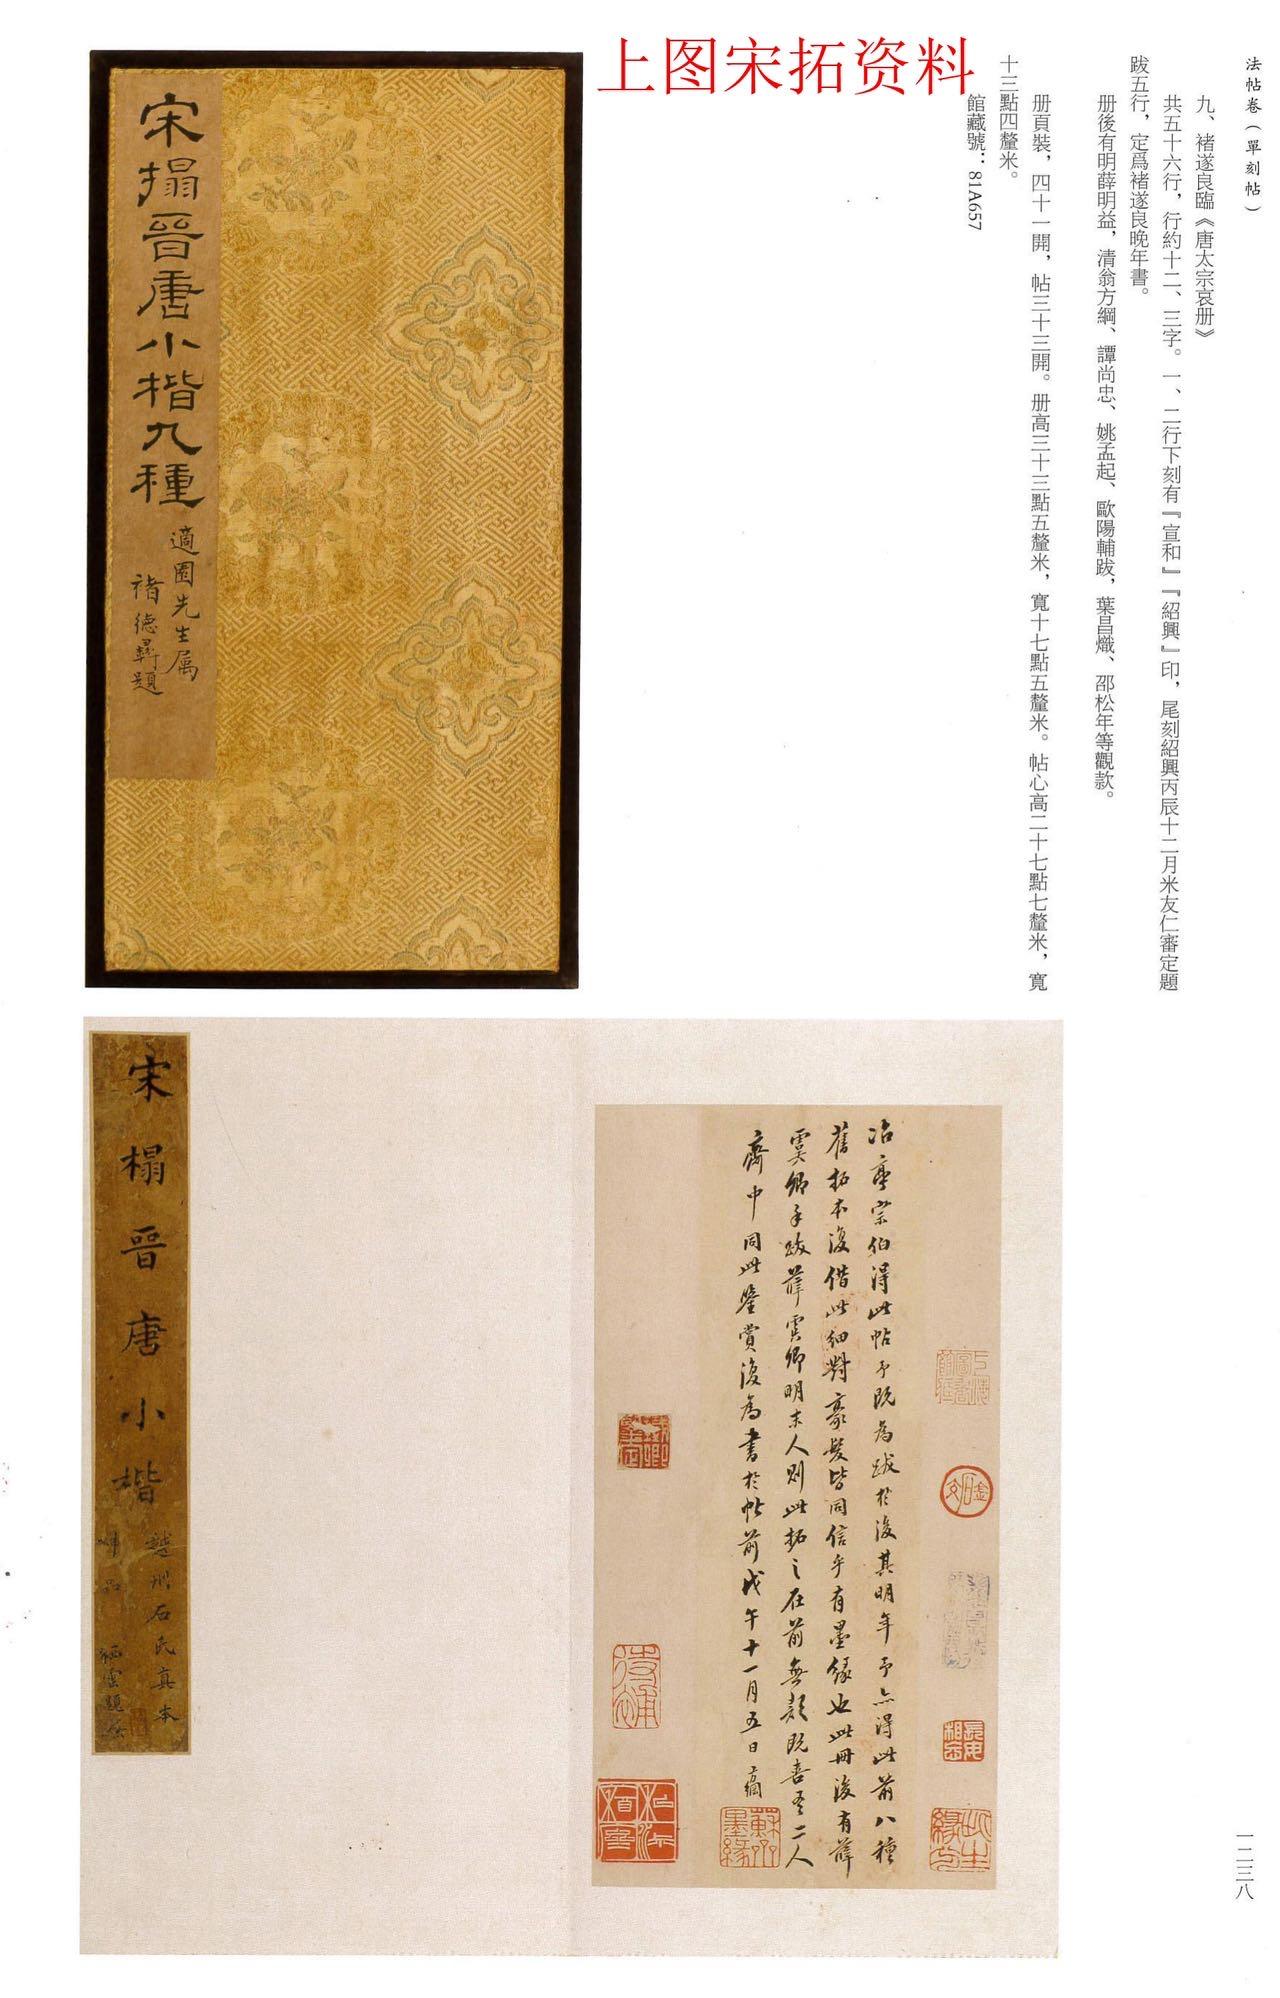 上图宋拓资料
法帖卷（單刻帖）
九、褚遂良臨《唐太宗哀册》
共五十六行，行約十二、三字。一、二行下刻有『宣和』『紹興』印，尾刻紹興丙辰十二月米友仁審定題
跋五行，定爲褚遂良晚年書。
册後有明薛明益，清翁方綱、譚尚忠、姚孟起、歐陽輔跋，葉昌熾、邵松年等觀款。
册頁裝，四十一開，帖三十三開。册高三十三點五釐米，寬十七點五釐米。帖心高二十七點七釐米，寬
十三點四釐米。
館藏號：81A657
宋搨晉唐小楷九種
適園先生属
褚德彝題
冶亭宗伯得此帖予既為跋於後其明年予亦得此前八種
舊拓本復借此細對豪髮皆同信乎有墨緣也此冊後有薛
虞卿手跋薛虞卿明末人則此拓之在前無疑既喜吾二人
齋中同此鑒賞復為書於帖前戊午十一月五日
宋榻晉唐小楷
越州石氏真本
一二三八